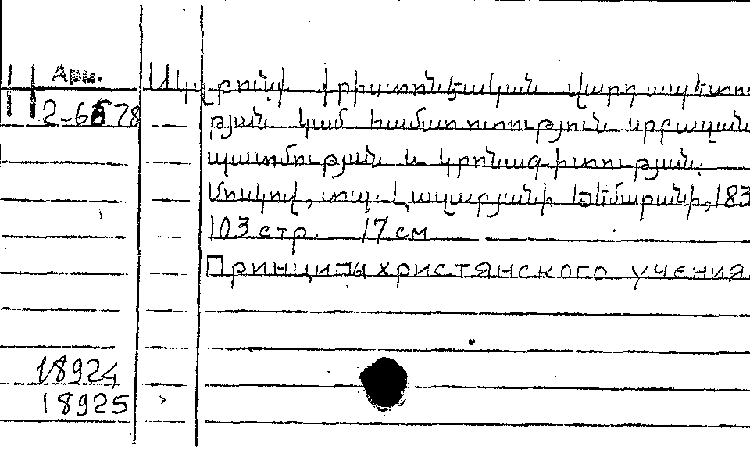 Арм.
2-6578
Սկզբունք քրիստոնէական վարդապետու
թյան կամ համառոտություն սրբազան
պատմության և կրոնագիտության.
Մոսկով, տպ. Լազարյանի ճեմարանի, 183
103 стр. 17 см
Принципы христянского учения.
18924
18925